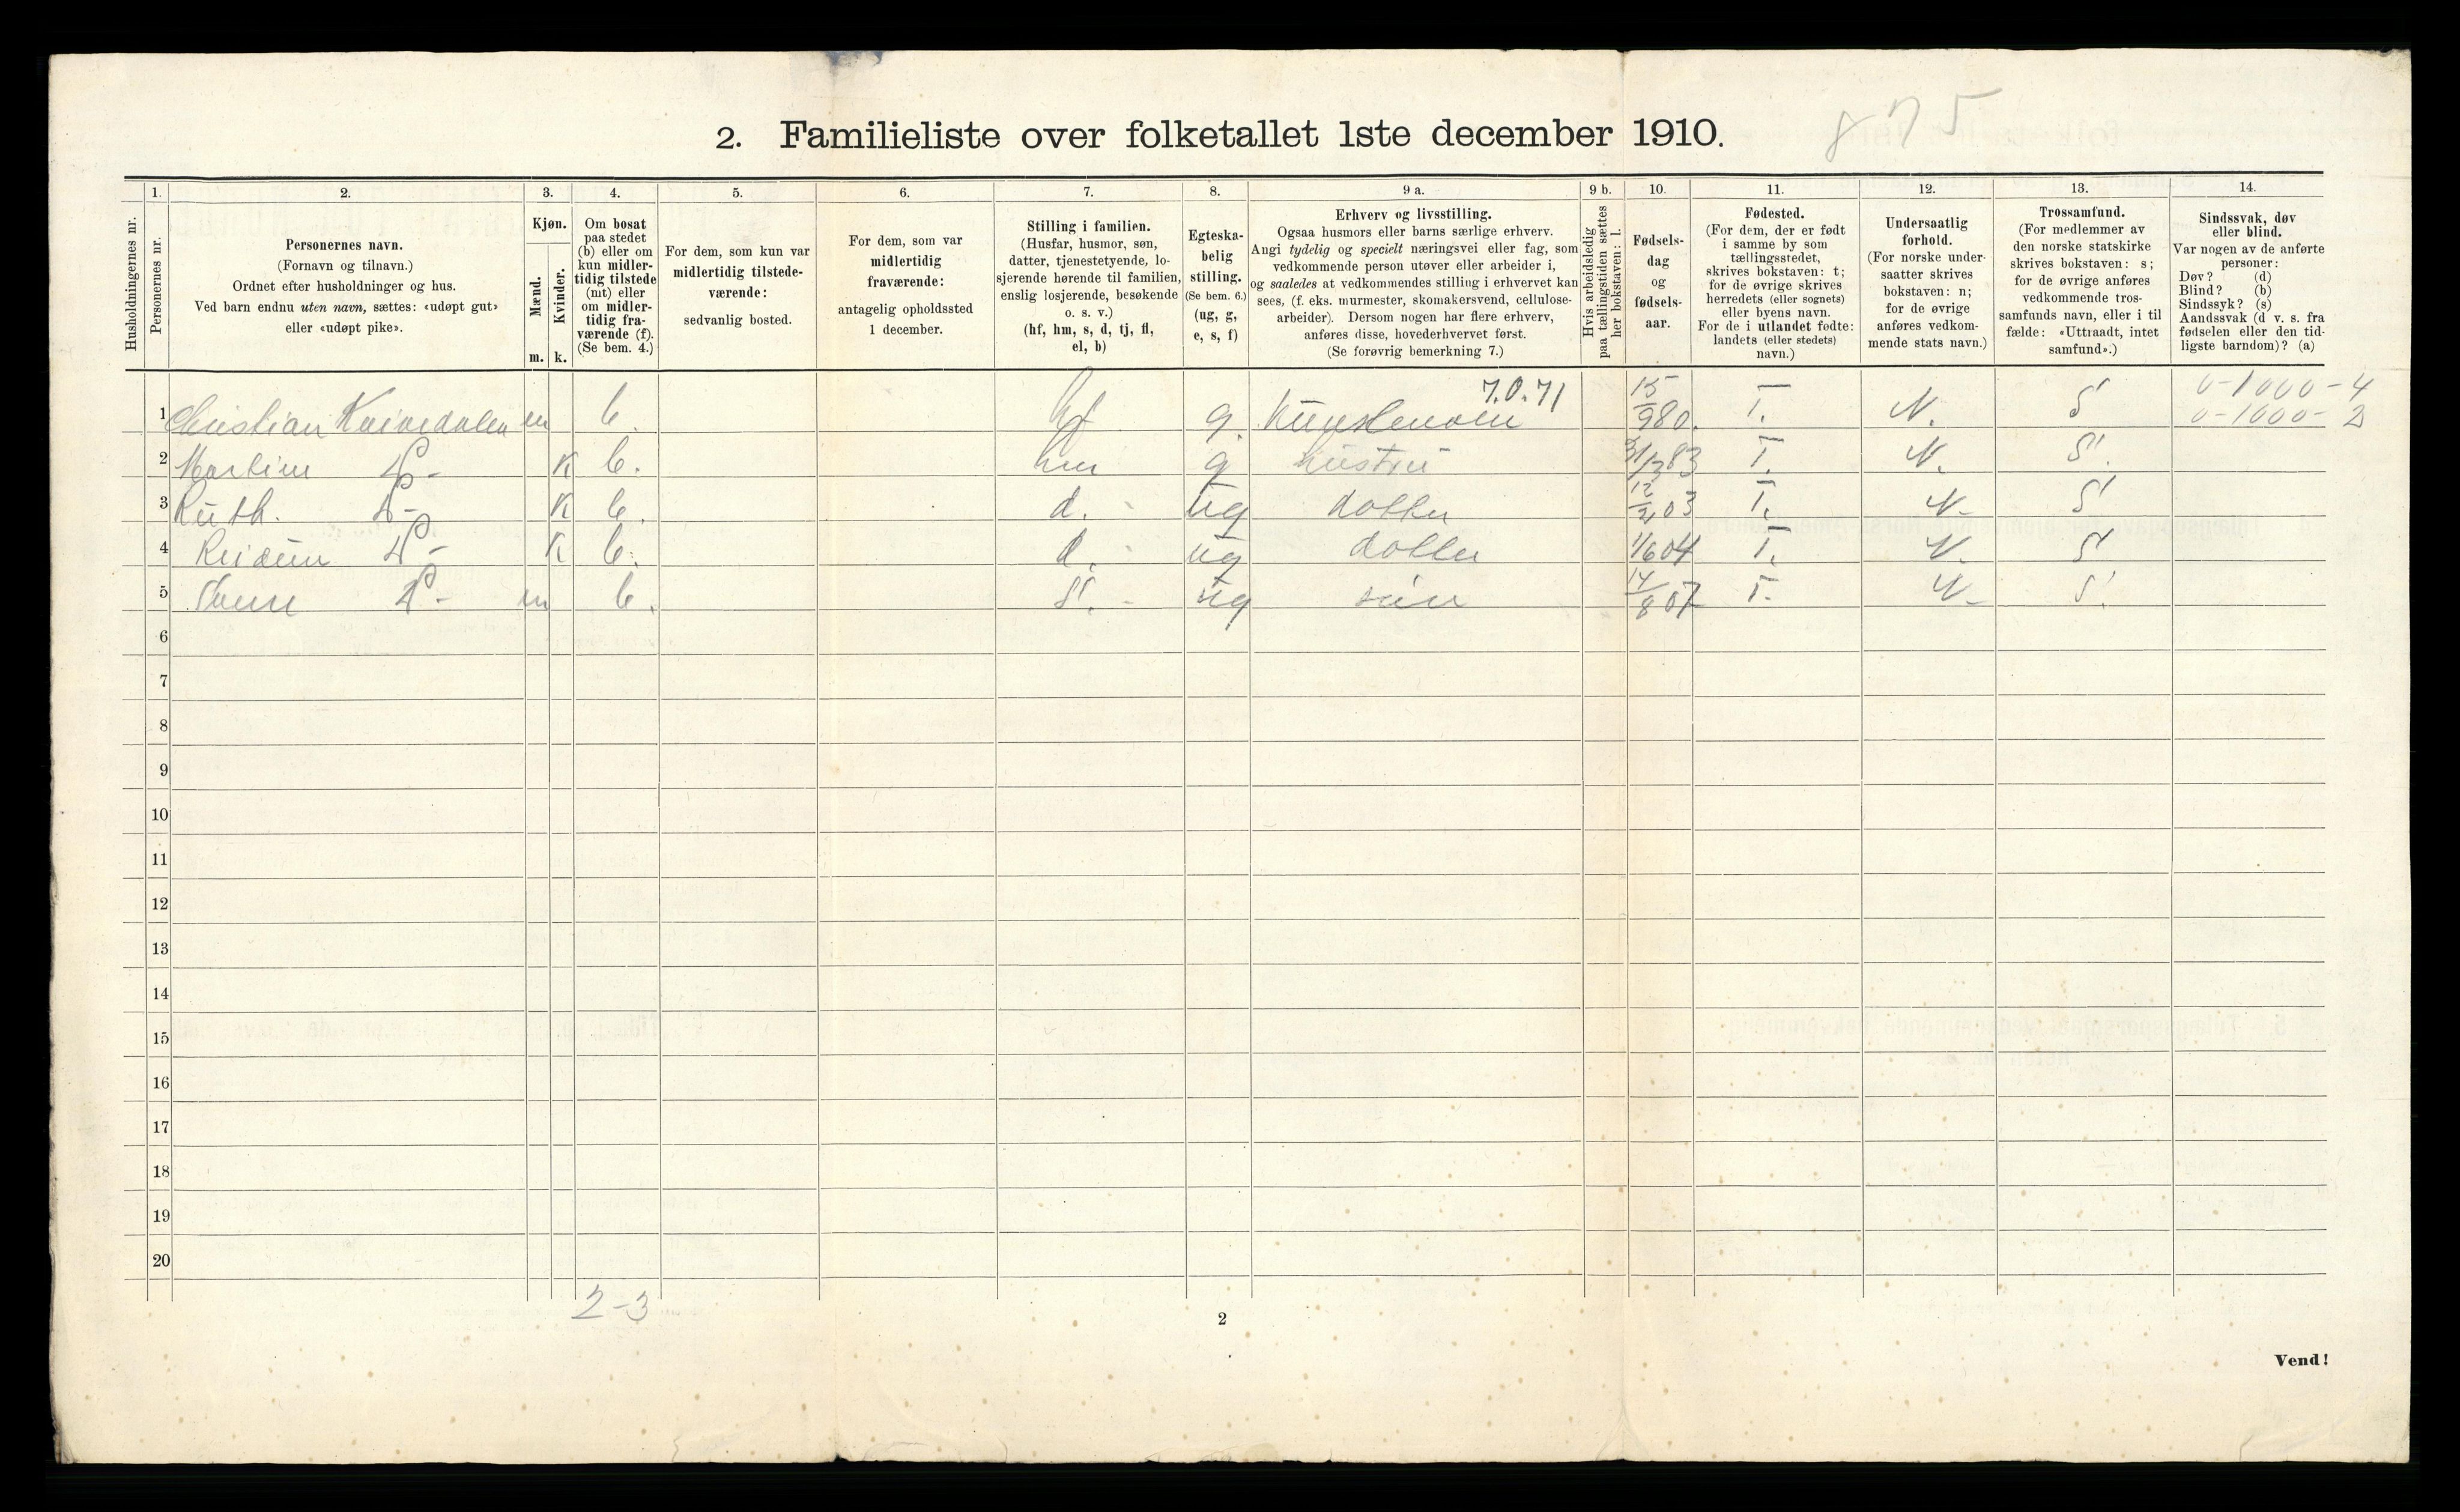 875
2. Familieliste over folketallet 1ste december 1910.
Husholdningernes nr.
1. Personernes nr.
2. Personernes navn.
(Fornavn og tilnavn.)
Ordnet efter husholdninger og hus.
Ved barn endnu uten navn, sættes: «udøpt gut»
eller «udøpt pike».
3. Kjøn.
Mænd. m.
Kvinder. k.
4. Om bosat
paa stedet
(b) eller om
kun midler-
tidig tilstede
(mt) eller
om midler-
tidig fra-
værende (f).
(Se bem. 4.)
5. For dem, som kun var
midlertidig tilstede-
værende:
sedvanlig bosted.
6. For dem, som var
midlertidig
fraværende:
antagelig opholdssted
1 december.
7. Stilling i familien.
(Husfar, husmor, søn,
datter, tjenestetyende, lo-
sjerende hørende til familien,
enslig losjerende, besøkende
o. s. v.)
(hf, hm, s, d, tj, fl,
el, b)
8. Egteska-
belig
stilling.
(Se bem. 6.)
(ug, g,
e, s, f)
9 a. Erhverv og livsstilling.
Ogsaa husmors eller barns særlige erhverv.
Angi tydelig og specielt næringsvei eller fag, som
vedkommende person utøver eller arbeider i,
og saaledes at vedkommendes stilling i erhvervet kan
sees, (f. eks. murmester, skomakersvend, cellulose-
arbeider). Dersom nogen har flere erhverv,
anføres disse, hovederhvervet først.
(Se forøvrig bemerkning 7.)
9 b. Hvis arbeidsledig
paa tællingstiden sættes
her bokstaven: l.
10. Fødsels-
dag
og
fødsels-
aar.
11. Fødested.
(For dem, der er født
i samme by som
tællingsstedet,
skrives bokstaven: t;
for de øvrige skrives
herredets (eller sognets)
eller byens navn.
For de i utlandet fødte:
landets (eller stedets)
navn.)
12. Undersaatlig
forhold.
(For norske under-
saatter skrives
bokstaven: n;
for de øvrige
anføres vedkom-
mende stats navn.)
13. Trossamfund.
(For medlemmer av
den norske statskirke
skrives bokstaven: s;
for de øvrige anføres
vedkommende tros-
samfunds navn, eller i til
fælde: «Uttraadt, intet
samfund».)
14. Sindssvak, døv
eller blind.
Var nogen av de anførte
personer:
Døv? (d)
Blind? (b)
Sindssyk? (s)
Aandssvak (d v. s. fra
fødselen eller den tid-
ligste barndom)? (a)
7.0.71 0-1000-4
1 Christian m b. hf g. 15/9 80. T. N. S 0-1000-2
2 K b. hm g hustru 31/3 83 T. N. S.
3 Ruth. K b. d. ug datter 03 T. N. S
4 K b. d. ug datter 1/6 04 T. N. S
5 m b. S. ug søn 14/8 07 T. N. S.
6
7
8
9
10
11
12
13
14
15
16
17
18
19
20
2-3
2
Vend!